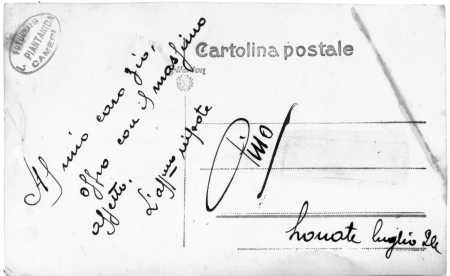 FOTOGRAFIA
PIANTANIDA
CAMERI
Cartolina postale
Al mio caro zio,
offro con il massimo
affetto.
L'aff.mo nipote
Pino
Lonate luglio 24